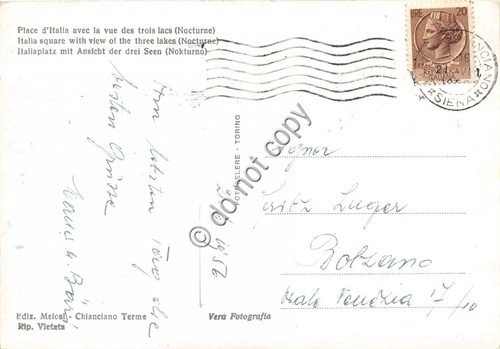 Place d'Italia avec la vue des trois lacs (Nocturne)
Italia square with view of the three lakes (Nocturne)
Italiaplatz mit Ansicht der drei Seen (Nokturno)
Vom letzten Tag die
besten Grüsse
Signor
Fritz Luger
Bolzano
Viale Venezia 17/10
FOTOCELERE - TORINO
do not copy
SIENA
Ediz. Melosi - Chianciano Terme
Rip. Vietata
Vera Fotografia